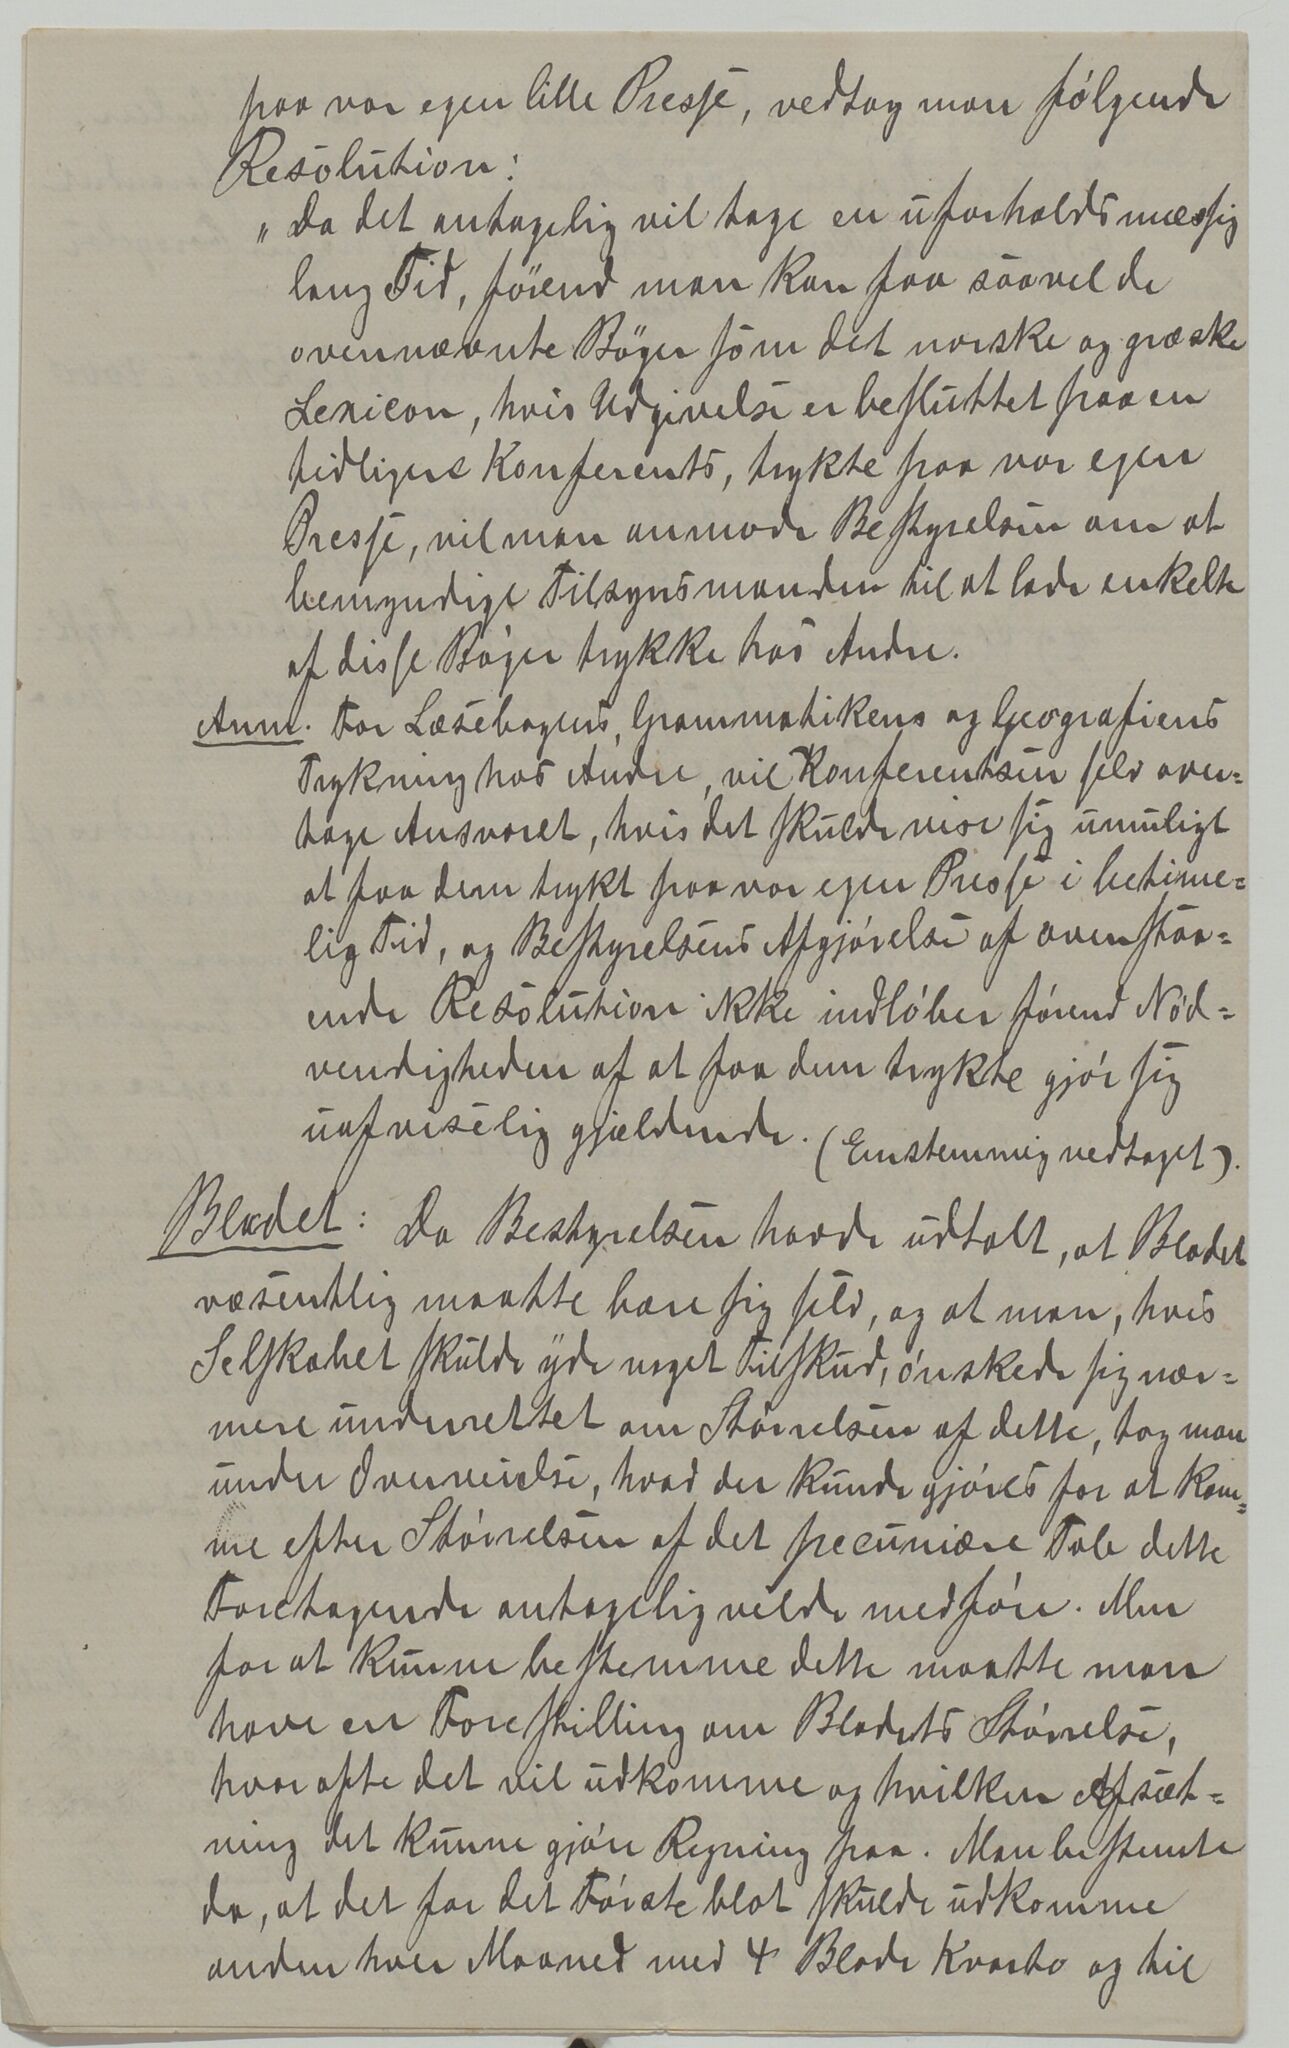 paa vor egen lille Presse, vedtog man følgende
Resolution:
"Da det antagelig vil tage en uforholdsmæssig
lang Tid, førend man kan faa saavel de
ovennævnte Bøger som det norske og græske
Lexicon, hvis Udgivelse er besluttet paa en
tidligere Konferents, trykte paa vor egen
Presse, vil man anmode Bestyrelsen om at
bemyndige Tilsynsmanden til at lade enkelte
af disse Bøger trykke hos Andre.
Anm. For Læsebogens, Grammatikens og Geografiens
Trykning hos Andre, vil Konferentsen selv over=
tage Ansvaret, hvis det skulde vise sig umuligt
at faa dem trykt paa vor egen Presse i betime=
lig Tid, og Bestyrelsens Afgjørelse af ovenstaa=
ende Resolution ikke indløber førend Nød=
vendigheden af at faa dem trykte gjør sig
uafviselig gjældende. (Enstemmig vedtaget).
Bladet: Da Bestyrelsen havde udtalt, at Bladet
væsentlig maatte bære sig selv, og at man, hvis
Selskabet skulde yde noget Tilskud, ønskede sig nær=
mere underrettet om Størrelsen af dette, tog man
under Overveielse, hvad der kunde gjøres for at kom=
me efter Størrelsen af det pecuniære Tab dette
Foretagende antagelig vilde medføre. Men
for at kunne bestemme dette maatte man
have en Forestilling om Bladets Størrelse,
hvor ofte det vil udkomme og hvilken Afsæt=
ning det kunne gjøre Regning paa. Man bestemte
da, at det for det Første blot skulde udkomme
anden hver Maaned med 4 Blade Kvarto og til